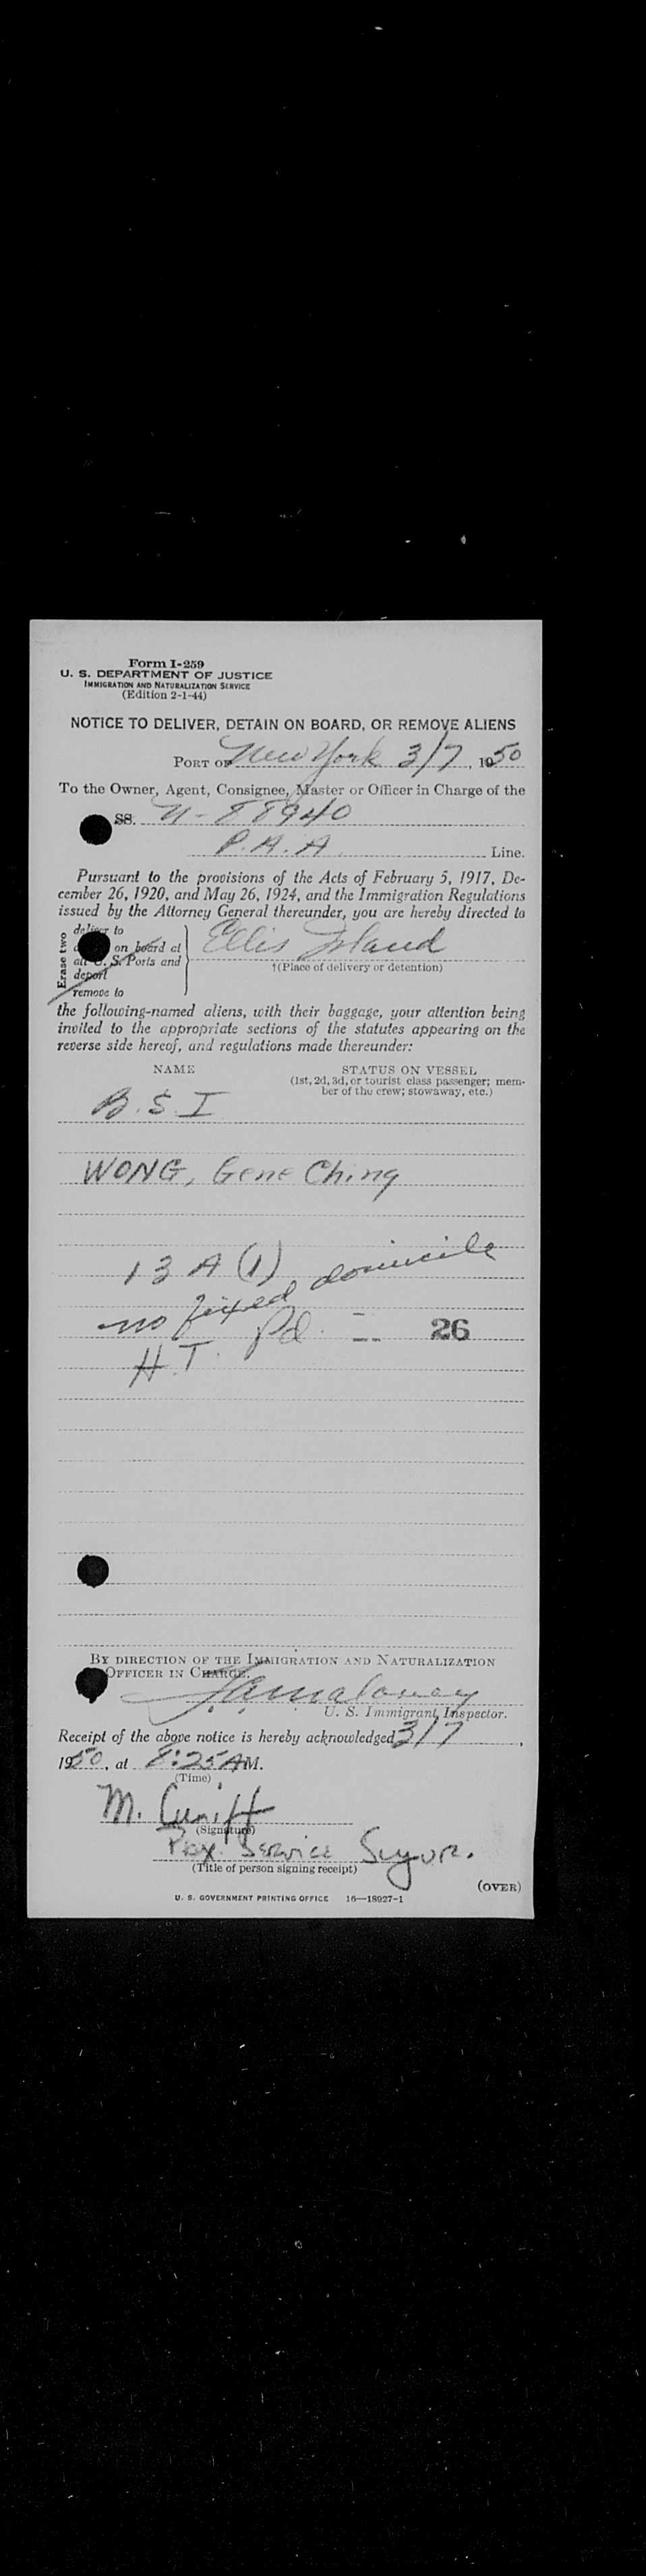 Form I-259
U. S. DEPARTMENT OF JUSTICE
IMMIGRATION AND NATURALIZATION SERVICE
(Edition 2-1-44)
NOTICE TO DELIVER, DETAIN ON BOARD, OR REMOVE ALIENS
PORT OF New York 3/7, 1950
To the Owner, Agent, Consignee, Master or Officer in Charge of the
SS. N-88940
P.A.A. Line.
Pursuant to the provisions of the Acts of February 5, 1917, De-
cember 26, 1920, and May 26, 1924, and the Immigration Regulations
issued by the Attorney General thereunder, you are hereby directed to
Erase two
deliver to
on board at
all U. S. Ports and
deport
remove to
Ellis Island
†(Place of delivery or detention)
the following-named aliens, with their baggage, your attention being
invited to the appropriate sections of the statutes appearing on the
reverse side hereof, and regulations made thereunder:
NAME
STATUS ON VESSEL
(1st, 2d, 3d, or tourist class passenger; mem-
ber of the crew; stowaway, etc.)
B.S.I
WONG, Gene Ching
13 A (1)
no fixed domicile
H.T. Pd. 26
BY DIRECTION OF THE IMMIGRATION AND NATURALIZATION
OFFICER IN CHARGE.
U. S. Immigrant Inspector.
Receipt of the above notice is hereby acknowledged 3/7,
1950, at 8:25 AM.
(Time)
M. Cuniff
(Signature)
Service
(Title of person signing receipt)
(OVER)
U. S. GOVERNMENT PRINTING OFFICE 16—18927-1